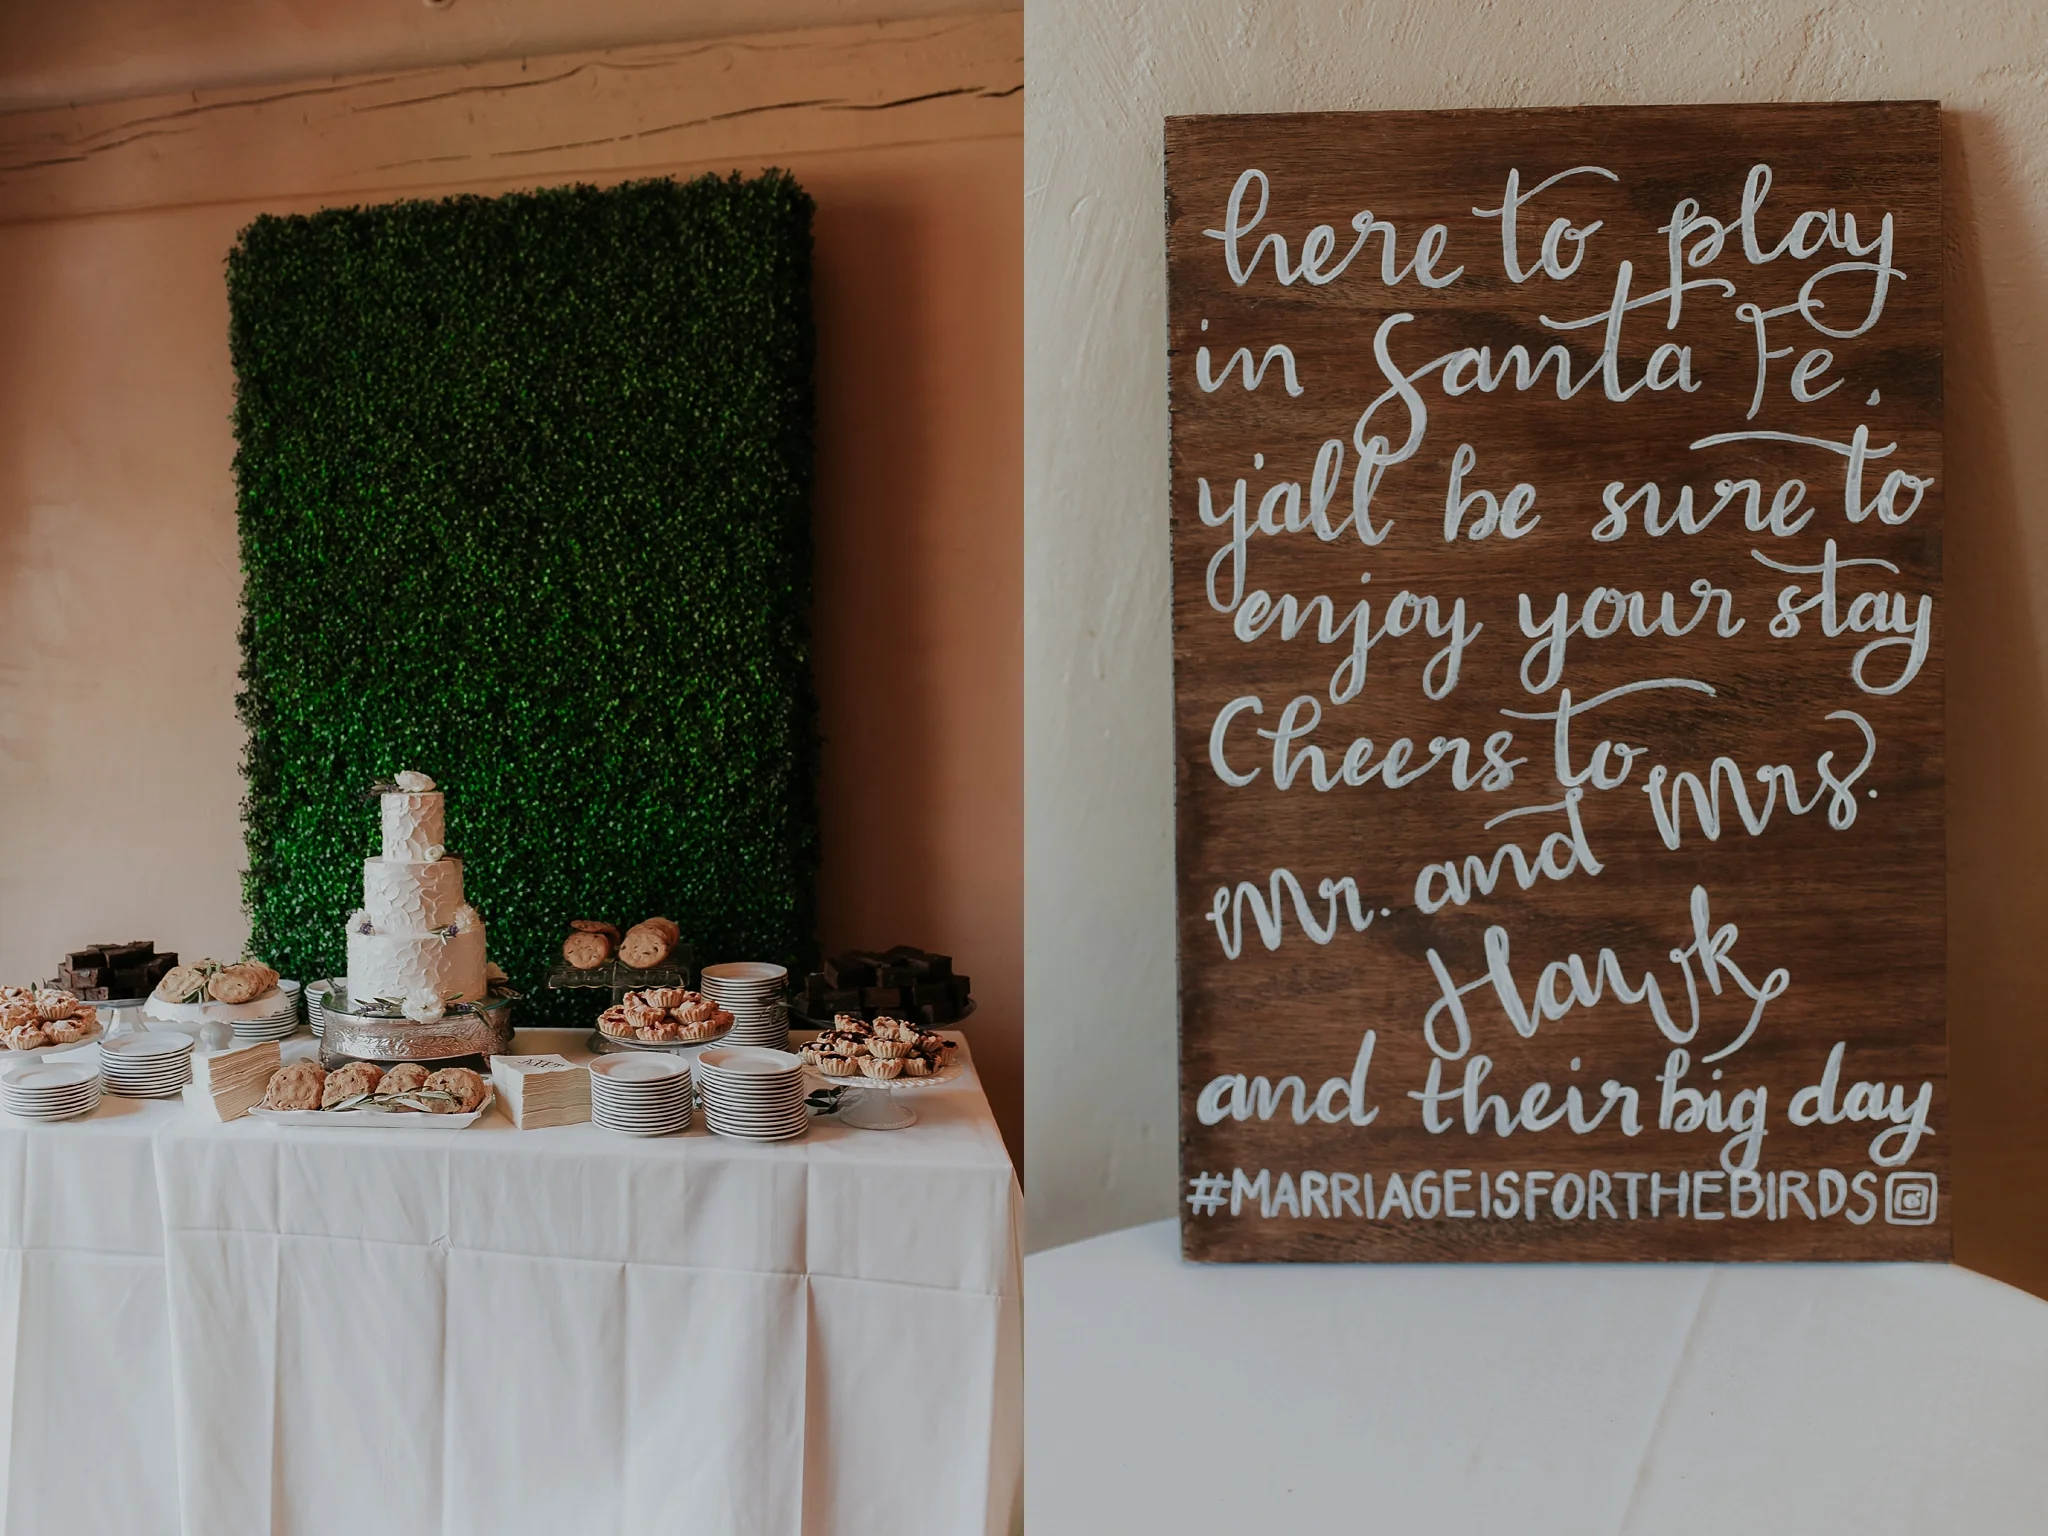 here to play
in Santa Fe.
y'all be sure to
enjoy your stay
Cheers to
Mr. and Mrs.
Hawk
and their big day
#MARRIAGEISFORTHEBIRDS